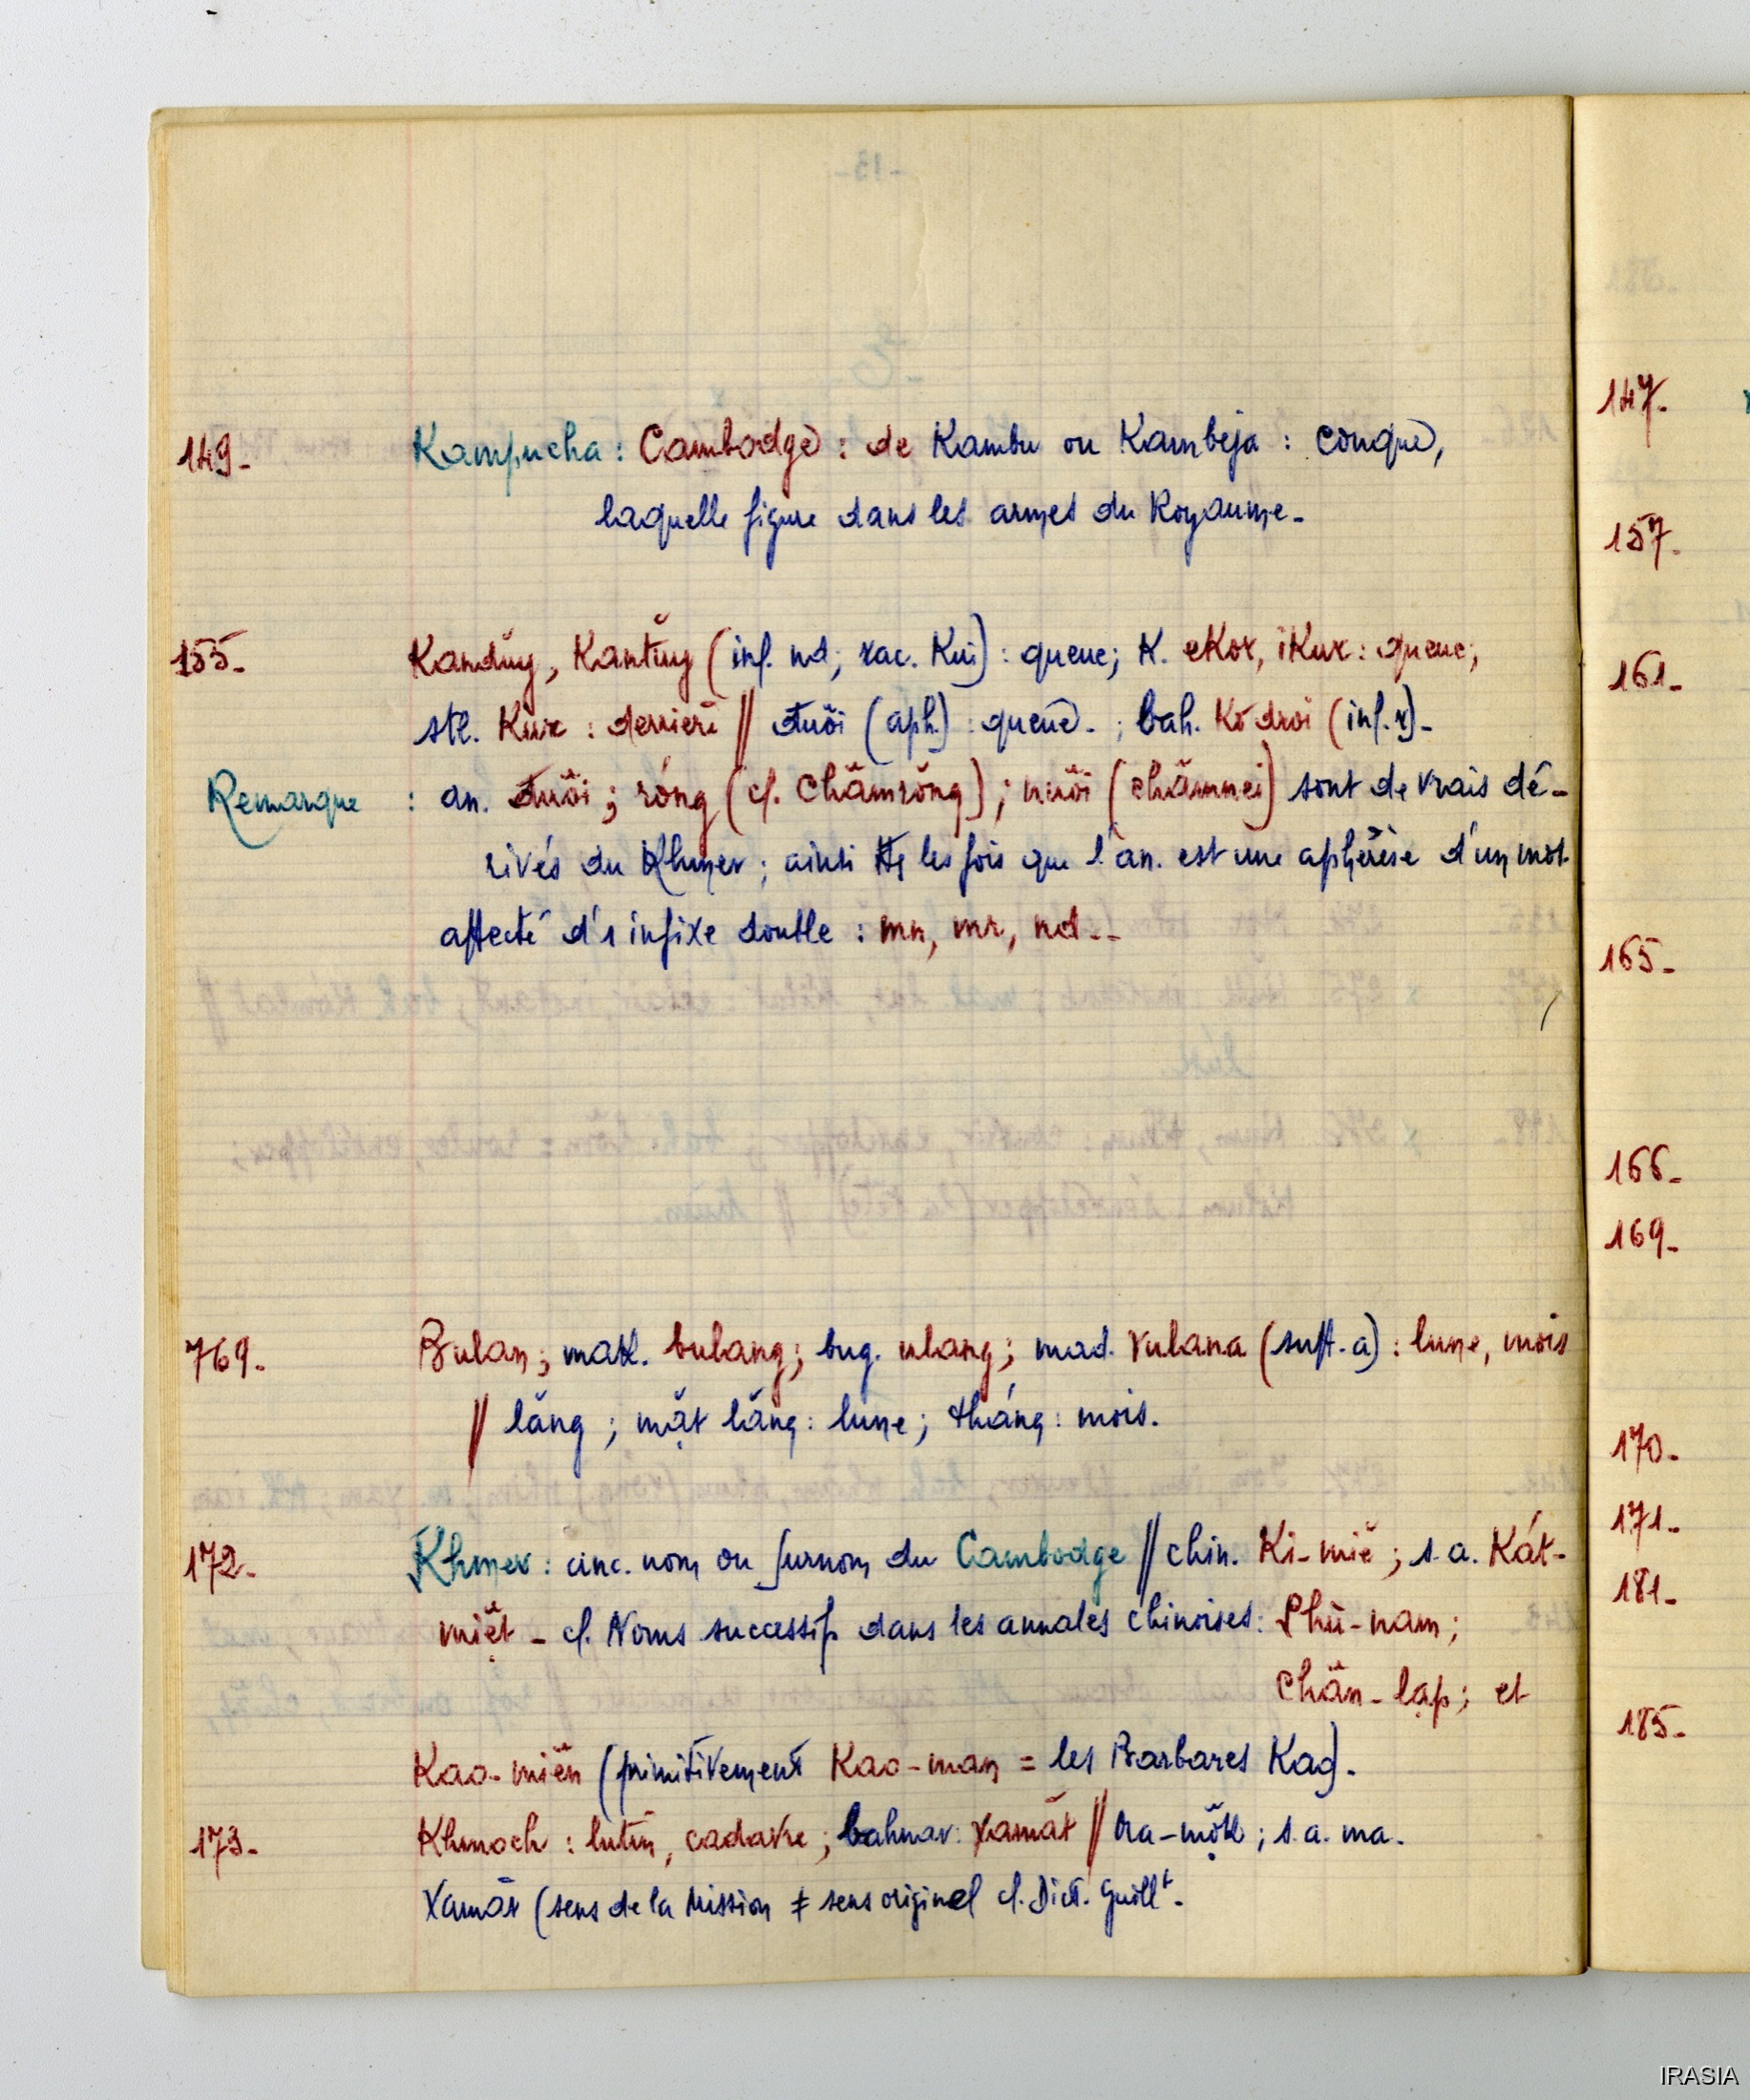 149- Kampucha : Cambodge : de Kambu ou Kambeja : conque,
laquelle figure dans les armes du Royaume-
155- Kanduy, Kantuy (inf. nd; rac. Kui) : queue; K. eKor, iKur : queue;
Kur : derriere // đuôi (aph.) : queue - ; bah. Kodroi (inf. r)-
Remarque : an. đuôi ; róng (cf. Chămrŏng) ; nuôi (chămnei) sont de vrais dé-
rivés du Khmer ; ainsi ttes les fois que l'an. est une aphérèse d'un mot
affecté d'1 infixe double : mn, mr, nd --
769- Bulan ; mak. bulang ; bug. ulang ; mad. vulana (suff. a) : lune, mois
// lăng ; mặt lăng : lune ; tháng : mois.
172- Khmer : anc. nom ou surnom du Cambodge // chin. Ki-miĕ ; s.a. Kát-
miệt - cf. Noms successifs dans les annales chinoises : Phù-nam ;
Chân-lạp ; et
Kao-miên (primitivement Kao-man = les Barbares Kao).
173- Khmoch : lutin, cadavre ; bahnar : Xamăt // ma-môk ; s.a. ma.
Xamăt (sens de la Mission ≠ sens originel cf. Dict. Guillt-
147-
157-
161-
165-
166-
169-
170-
171-
181-
185-
IRASIA